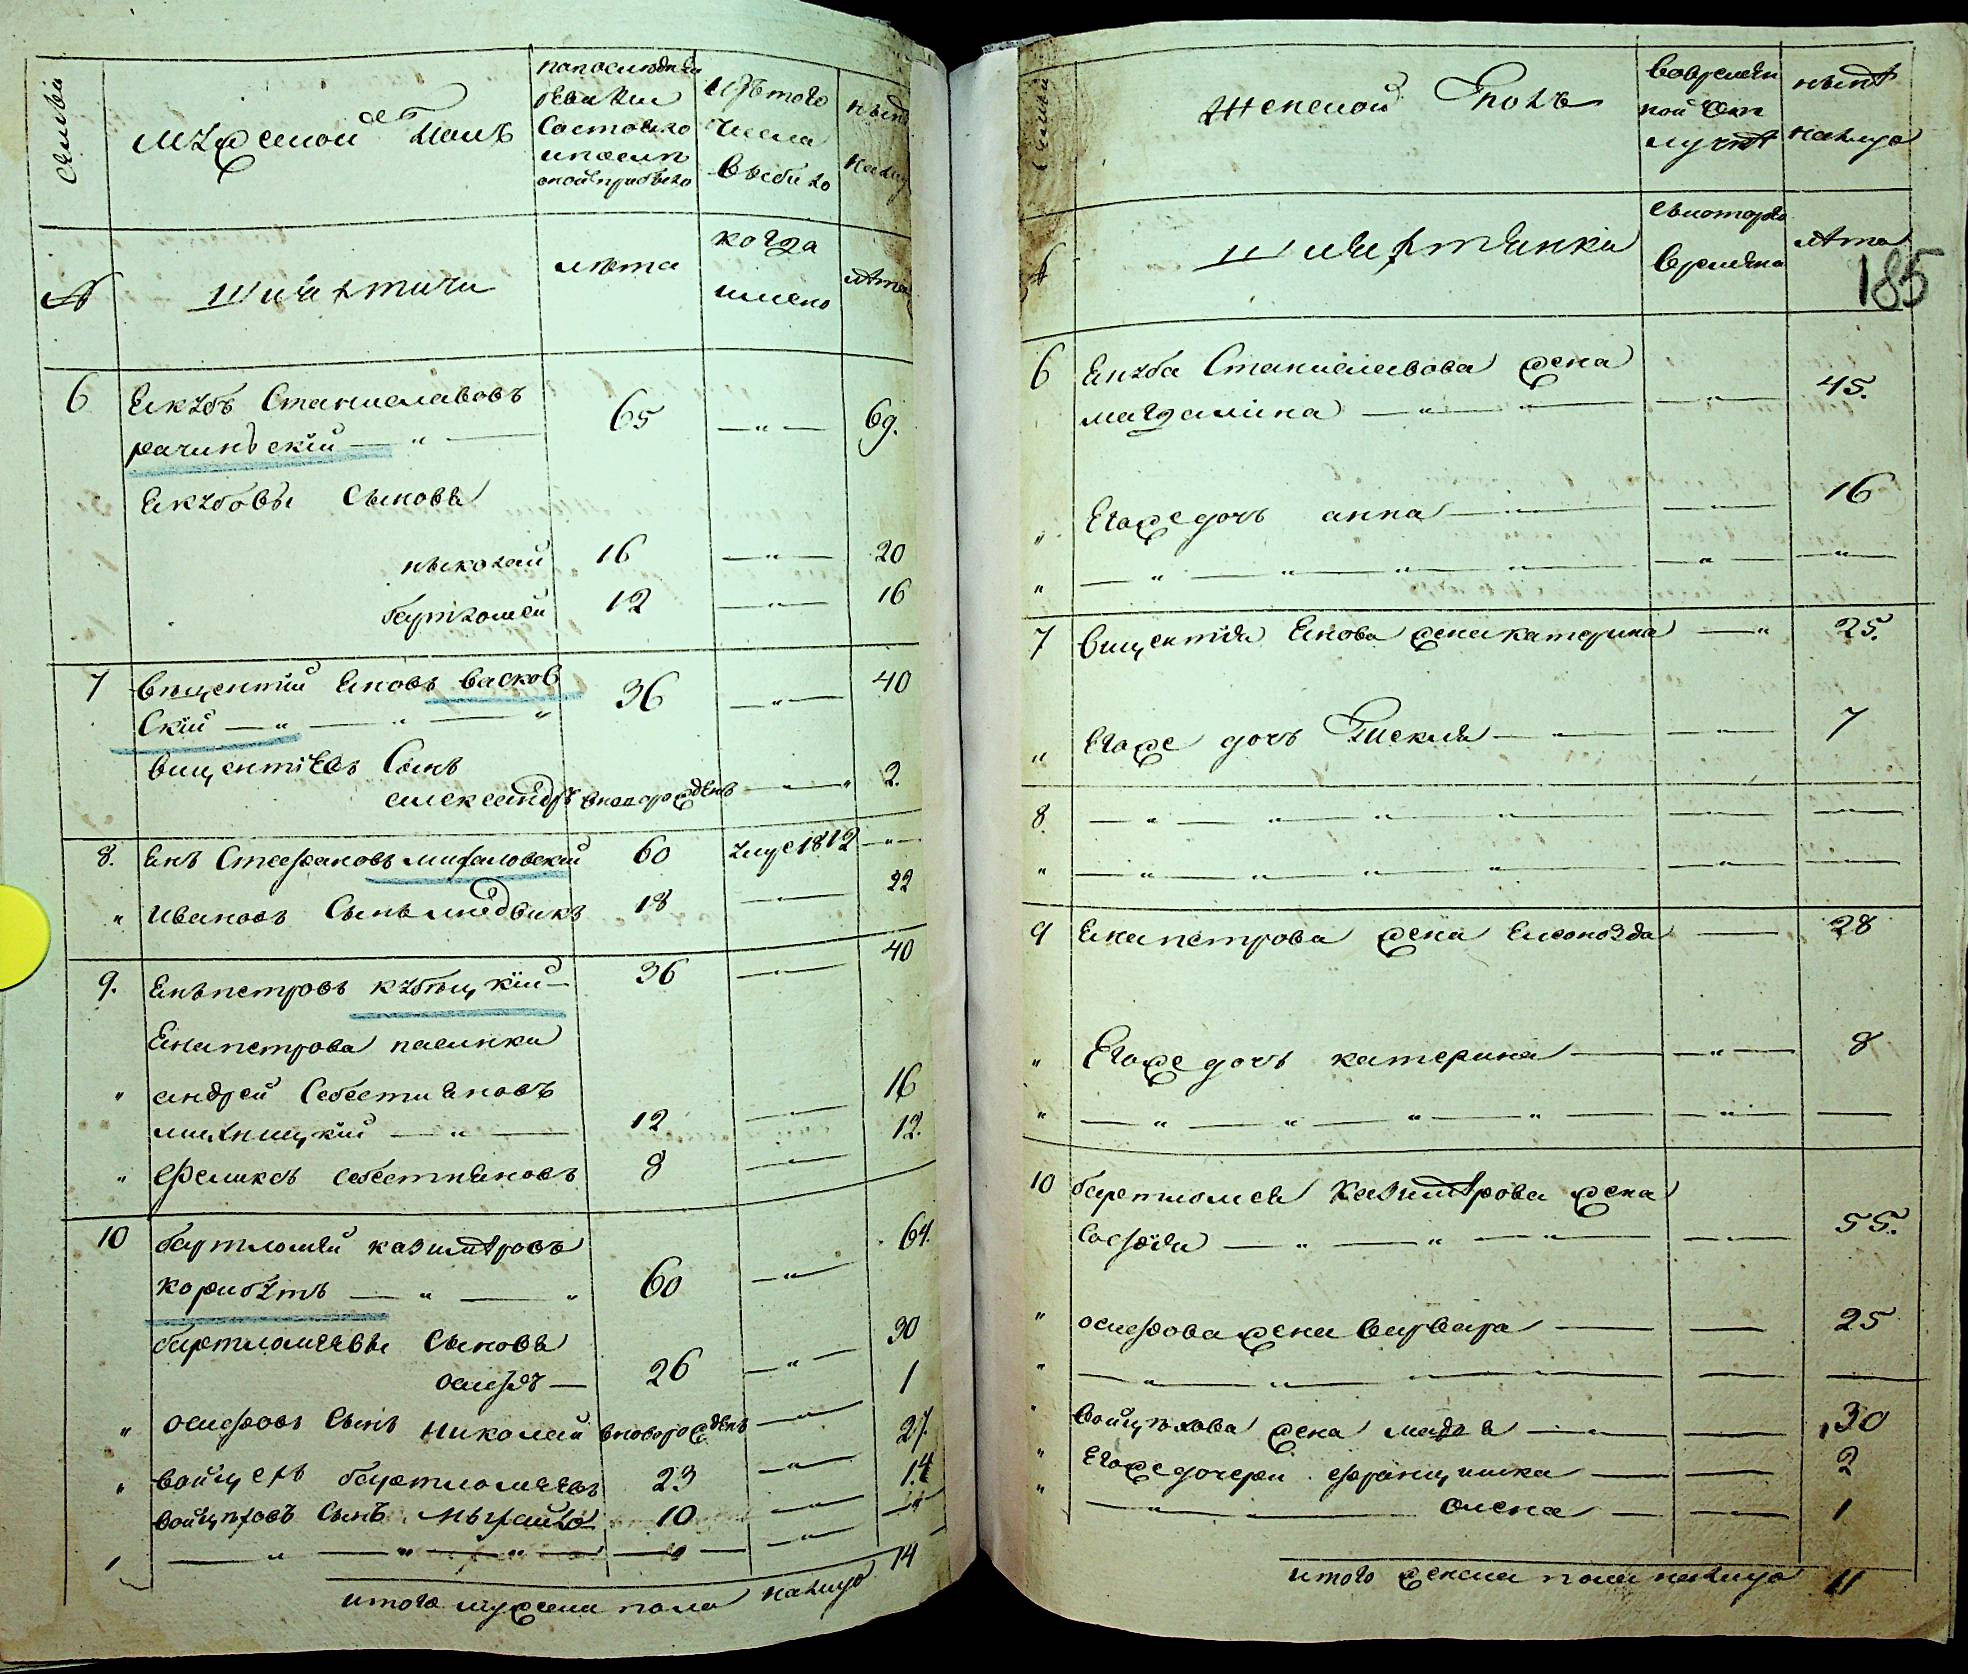 семьи
мужеской полъ
напоследней
ревизии
Состояло
ипосле
оной прибыло
изътого
числа
выбыло
ныне
налиц
№
шляхтичи
лѣта
когда
имено
лѣта
6 Якубъ Станиславовъ
рачинъский — " — 65 — " — 69.
Якубовы Сыновя
николай 16 — " — 20
бартломей 12 — " — 16
7 Вицентий Яновъ васков
ский — " — " — " 36 — " — 40
вицентіевъ Сынъ
александръ вноворожденъ — " 2.
8. Янъ Стефановъ михаловский 60 умре 1812 — " —
" Ивановъ Сынъ людвикъ 18 — 22
9. Янъ петровъ кубицкий — 36 — 40
Яна петрова пасинки
" андрей Себестияновъ
михницкий — " — 12 — 16
" Феликсъ себестияновъ 8 — 12.
10 бартломей казимѣровъ
корибутъ — " — " 60 — " — 64.
бартломеевы Сыновя
осифъ — 26 — " — 30
" осифовъ Сынъ николай вноворожденъ — 1
" войцехъ бартломеевъ 23 — " — 27.
войцеховъ Сынъ михайло 10 — 14
— " — " — " — " —
итого мужеска пола налицо 14
семьи
женской полъ
вовремен
ной отлучке
ныне
налицо
№
шляхтянки
скоторого
времяни
лѣта
185
6 Якуба Станиславова жена
магдалина — " — " — " — 45.
" Егоже дочь анна — " — 16
" — " — " — " — " — " — " —
7 вицентія Янова жена катерина — " 25.
" Егоже дочь Текля — " — " — 7
8. — " — " — " — " — —
" — " — " — " — " — " — —
9 Яна петрова жена Елеонозда — 28
" Егоже дочь катерина — " — 8
" — " — " — " — " — " — —
10 бартломея Казимѣрова жена
Софія — " — " — " — 55.
" осифова жена варвара — — 25
" — " — " — " — " — —
" войцехова жена марта — — 30
" Егоже дочери францишка — — 2
" — " — олена — — 1
итого женска пола налицо 11